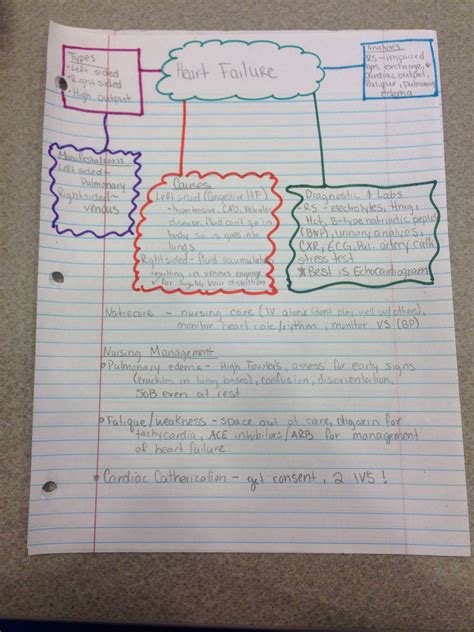 Heart Failure
Types
• Left sided
• Right sided
• High output
Analysis
RS - impaired
gas exchange, ↓
cardiac output,
fatigue, pulmonary
edema
Manifestations
Left sided ~
Pulmonary
Right sided ~
venous
Causes
Left sided (Congestive HF)
- hypertensive, CAD,
disease, fluid cant go in
body so is goes into
lungs
Right sided - fluid accumulates
resulting in venous
✓ for Jugular Vein distentions
Diagnostic & Labs
RS - electrolytes, Hmg,
Hct, B-type natriuretic peptide
(BNP), urinary analysis,
CXR, ECG, Pul. artery cath
stress test
*Best is Echocardiogram
Natrecore - nursing care (IV alone (dont play well w/others),
monitor heart rate/rythm, monitor VS (BP)
Nursing Management
• Pulmonary edema - High Fowlers, assess for early signs
(crackles in lung bases), confusion, disorientation,
SOB even at rest
• Fatigue/weakness - space out pt care, digoxin for
tachycardia, ACE inhibitors/ARB for management
of heart failure
• Cardiac Catherization - get consent, 2 IVS!